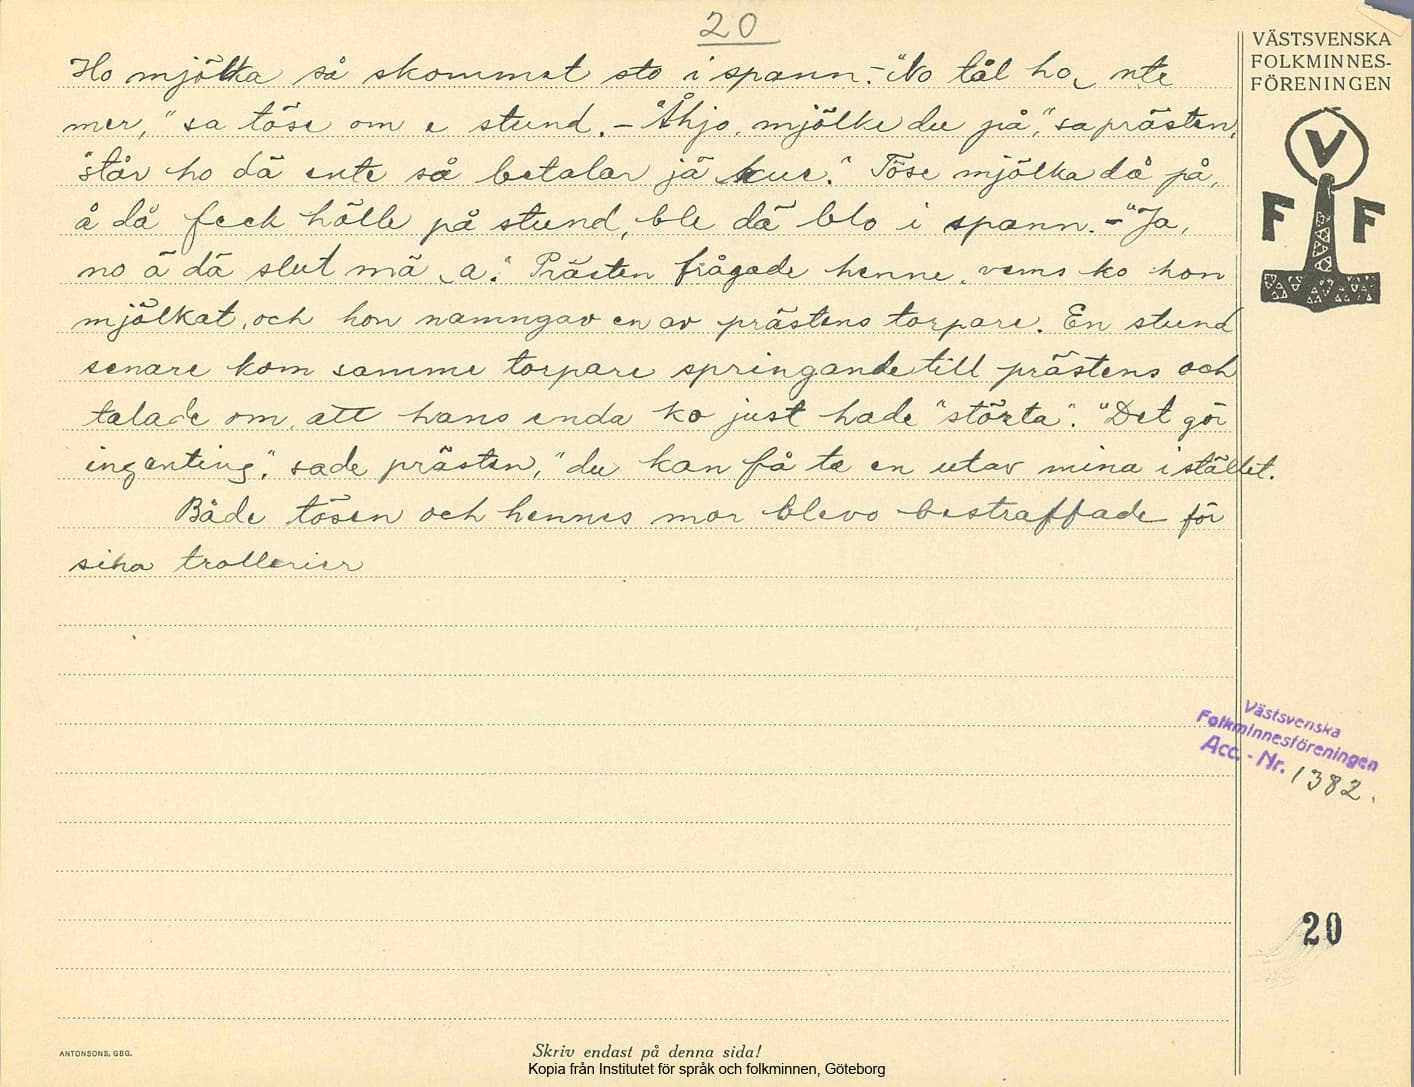 20
Ho mjölka så skommet sto i spann. – "No tål ho nte
mer," sa töse om e stund. – "Åhjo, mjölke du på," sa prästen,
"står ho dä ente så betalar jä kue." Töse mjölka då på,
å då feck hölle på stund, ble dä blo i spann. – "Ja,
no ä dä slut mä a." Prästen frågade henne, vems ko hon
mjölkat, och hon namngav en av prästens torpare. En stund
senare kom samme torpare springande till prästens och
talade om, att hans enda ko just hade "störta". "Det gör
ingenting", sade prästen, "du kan få ta en utav mina i stället.
Både tösen och hennes mor blevo bestraffade för
sina trollerier
VÄSTSVENSKA
FOLKMINNES-
FÖRENINGEN
V
F F
Västsvenska
Folkminnesföreningen
Acc. - Nr. 1382.
20
ANTONSONS, GBG.
Skriv endast på denna sida!
Kopia från Institutet för språk och folkminnen, Göteborg